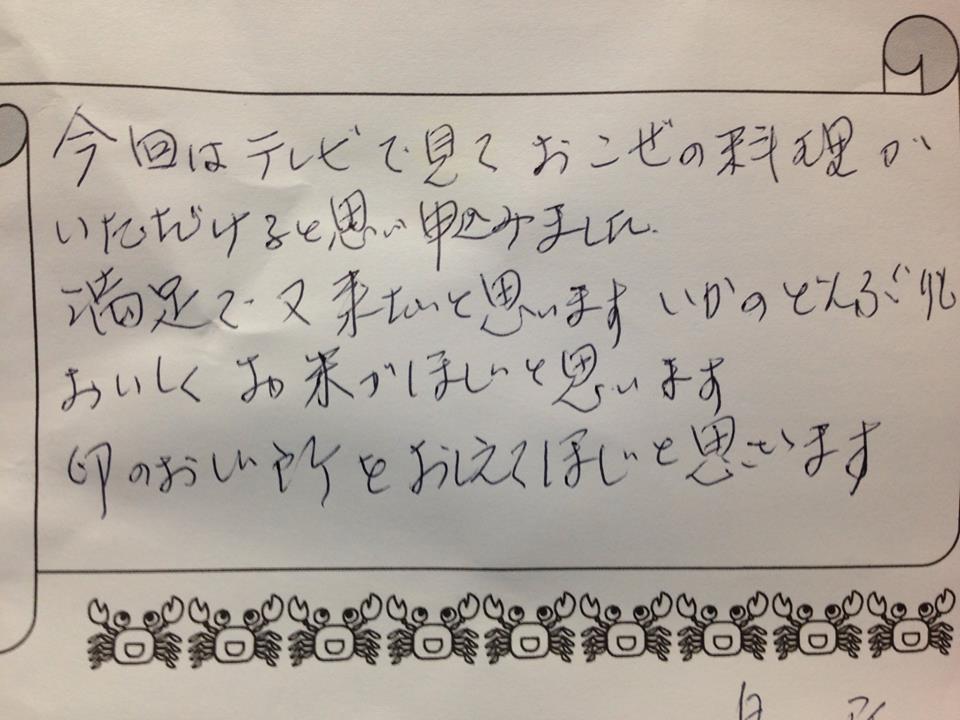 今回はテレビで見ておこぜの料理が
いただけると思い申込みました。
満足で又来たいと思います いかのどんぶりも
おいしくお米がほしいと思います
印のおしい所をおしえてほしいと思います